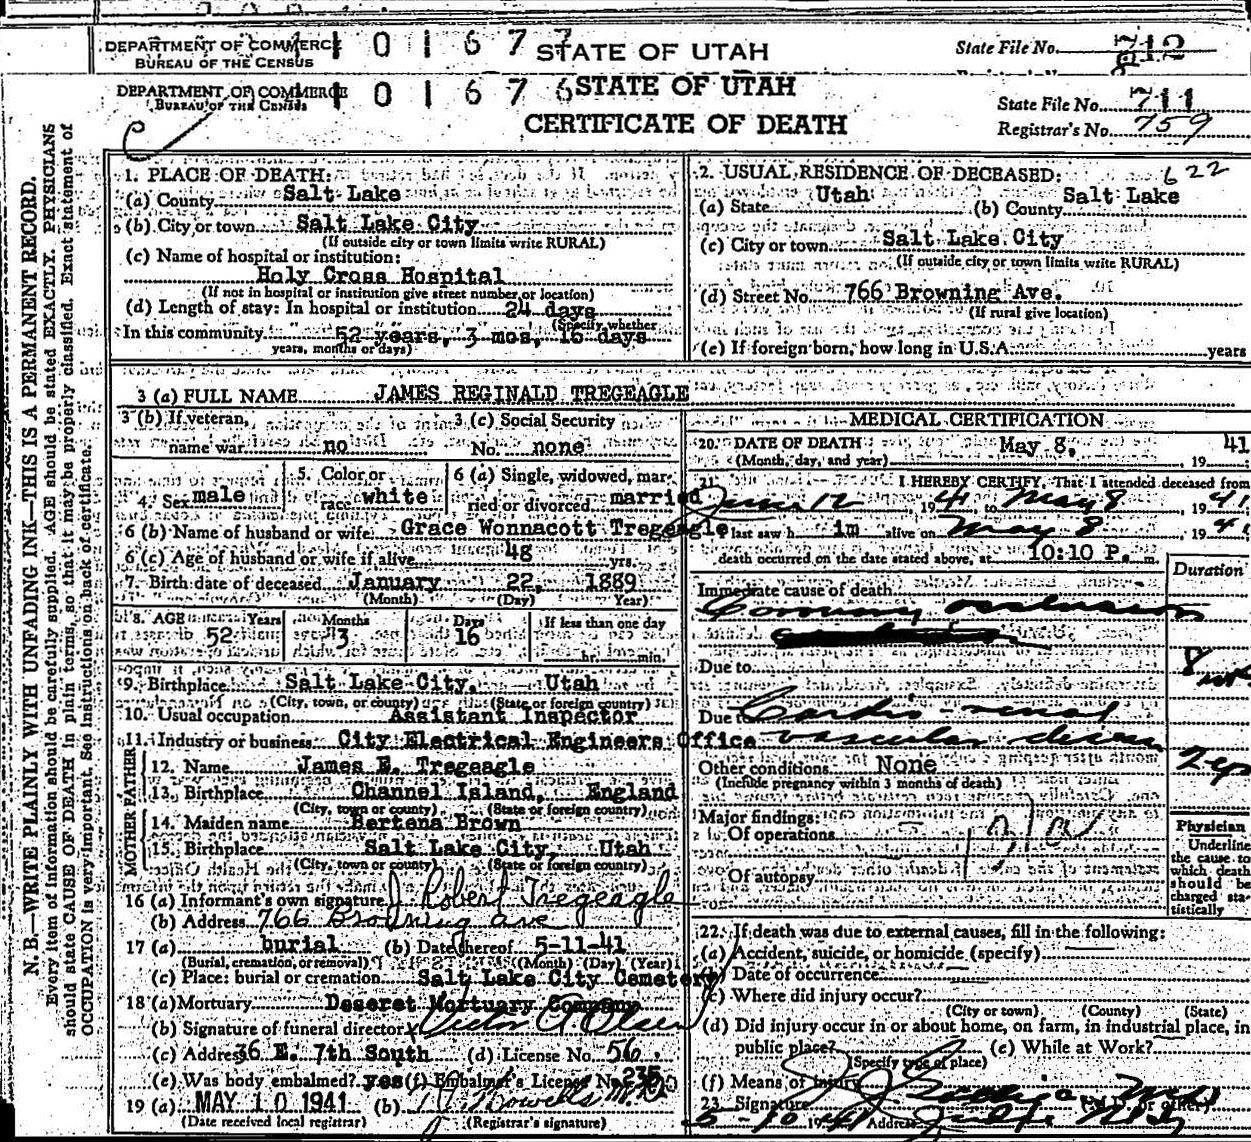 DEPARTMENT OF COMMERCE
BUREAU OF THE CENSUS
101677
STATE OF UTAH
State File No. 712
DEPARTMENT OF COMMERCE
BUREAU OF THE CENSUS
101676
STATE OF UTAH
CERTIFICATE OF DEATH
State File No. 711
Registrar's No. 759
N. B.—WRITE PLAINLY WITH UNFADING INK—THIS IS A PERMANENT RECORD.
Every item of information should be carefully supplied. AGE should be stated EXACTLY. PHYSICIANS
should state CAUSE OF DEATH in plain terms, so that it may be properly classified. Exact statement of
OCCUPATION is very important. See instructions on back of certificate.
1. PLACE OF DEATH:
(a) County Salt Lake
(b) City or town Salt Lake City
(If outside city or town limits write RURAL)
(c) Name of hospital or institution:
Holy Cross Hospital
(If not in hospital or institution give street number or location)
(d) Length of stay: In hospital or institution 24 days
(Specify whether
In this community 52 years, 3 mos, 16 days
years, months or days)
2. USUAL RESIDENCE OF DECEASED: 622
(a) State Utah (b) County Salt Lake
(c) City or town Salt Lake City
(If outside city or town limits write RURAL)
(d) Street No. 766 Browning Ave.
(If rural give location)
(e) If foreign born, how long in U.S.A. years
3 (a) FULL NAME JAMES REGINALD TREGEAGLE
3 (b) If veteran, 3 (c) Social Security
name war no No. none
4. Sex male 5. Color or race white 6 (a) Single, widowed, married or divorced married
6 (b) Name of husband or wife Grace Wonnacott Tregeagle
6 (c) Age of husband or wife if alive 48 yrs.
7. Birth date of deceased January 22, 1889
(Month) (Day) Year)
8. AGE Years Months Days If less than one day
52 3 16 hr. min.
9. Birthplace Salt Lake City, Utah
(City, town, or county) (State or foreign country)
10. Usual occupation Assistant Inspector
11. Industry or business City Electrical Engineers Office
FATHER
12. Name James E. Tregeagle
13. Birthplace Channel Island, England
(City, town or county) (State or foreign country)
MOTHER
14. Maiden name Bertena Brown
15. Birthplace Salt Lake City, Utah
(City, town or county) (State or foreign country)
16 (a) Informant's own signature J Robert Tregeagle
(b) Address 766 Browning ave
17 (a) burial (b) Date thereof 5-11-41
(Burial, cremation, or removal) (Month) (Day) (Year)
(c) Place: burial or cremation Salt Lake City Cemetery
18 (a) Mortuary Deseret Mortuary Company
(b) Signature of funeral director Victor A Olsen
(c) Address 36 E. 7th South (d) License No. 56
(e) Was body embalmed? yes (f) Embalmer's License No. 235
19 (a) MAY 10 1941 (b)
(Date received local registrar) (Registrar's signature)
MEDICAL CERTIFICATION
20. DATE OF DEATH May 8, 1941
(Month, day, and year)
21. I HEREBY CERTIFY, That I attended deceased from
June 12 1941 to May 8 1941
I last saw him alive on May 8 1941
death occurred on the date stated above, at 10:10 P. m.
Duration
Immediate cause of death
Coronary occlusion
Due to
8 wks
Due to Cardio-renal
vascular disease
2 yrs
Other conditions None
(Include pregnancy within 3 months of death)
Major findings:
Of operations
Of autopsy
Physician
Underline
the cause to
which death
should be
charged sta-
tistically
22. If death was due to external causes, fill in the following:
(a) Accident, suicide, or homicide (specify)
(b) Date of occurrence
(c) Where did injury occur?
(City or town) (County) (State)
(d) Did injury occur in or about home, on farm, in industrial place, in
public place? (e) While at Work?
(Specify type of place)
(f) Means of injury
23. Signature (M.D. or other)
5 10 1941 Address